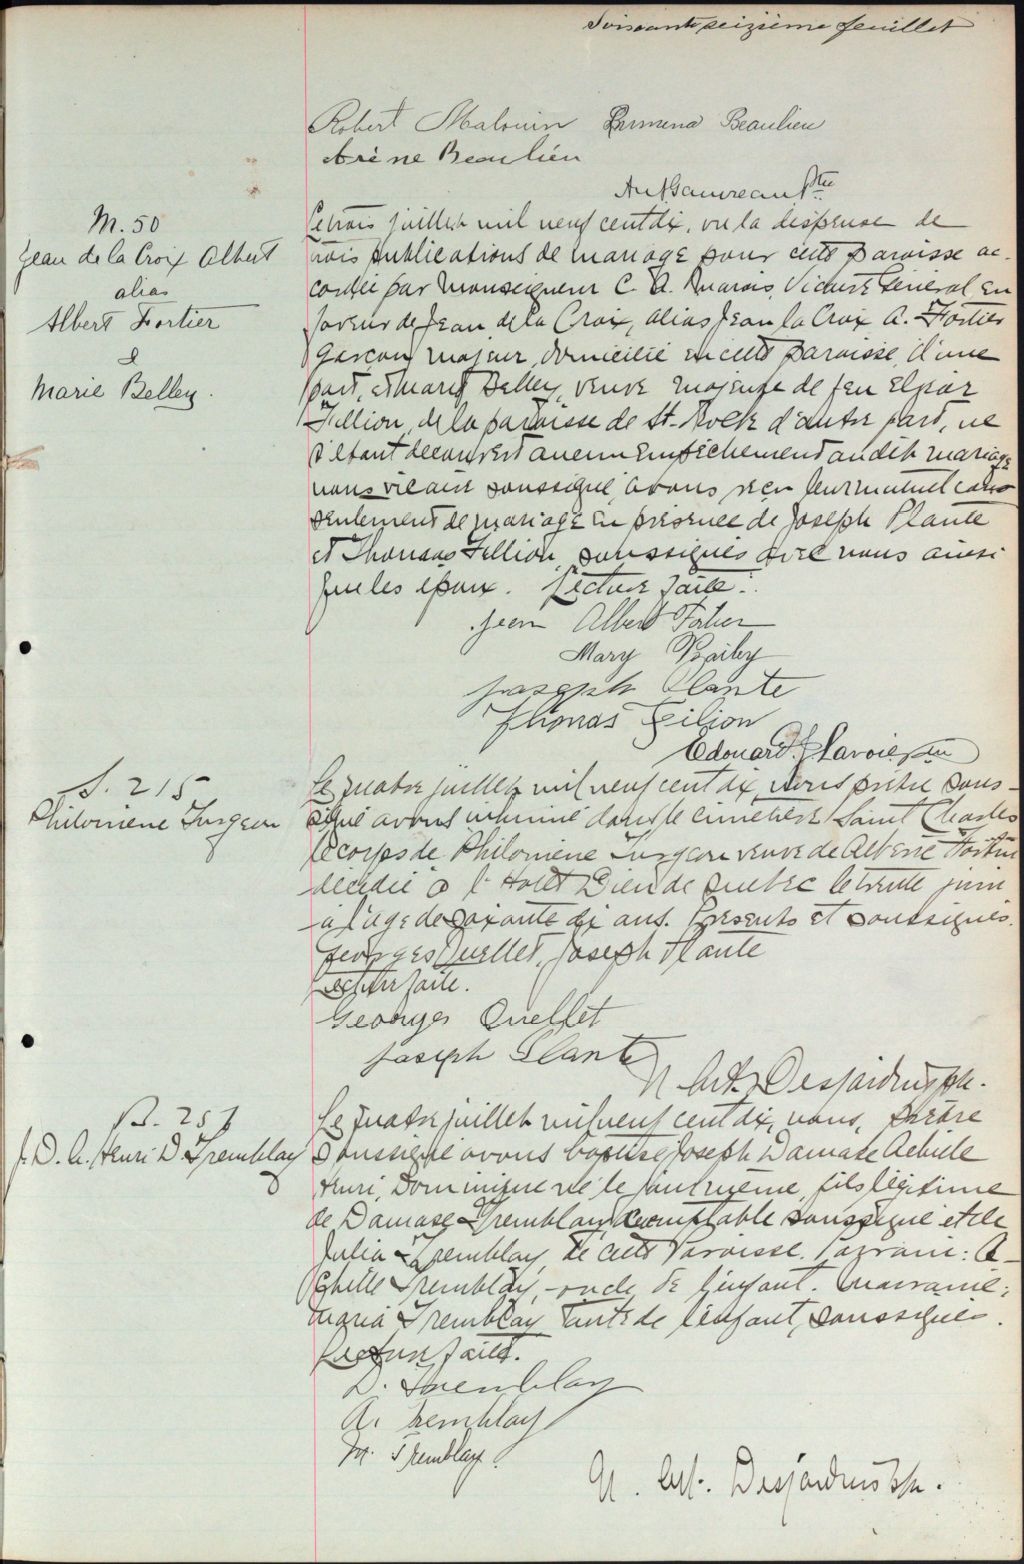 Soixante seizième feuillet
Robert Malouin Beaulieu
Irène Beaulieu
Ptre
M. 50
Jean de la Croix Albert
alias
Albert Fortier
&
Marie Belley.
Le trois juillet mil neuf cent dix, vu la dispense de
trois publications de mariage pour cette paroisse ac-
cordée par Monseigneur C. A. Marois, Vicaire Général en
faveur de Jean de la Croix, alias Jean la Croix A. Fortier
garçon majeur, domicilié en cette paroisse, d'une
part, et Marie Belley, veuve majeure de feu Elzéar
Fillion, de la paroisse de St-Roch d'autre part, ne
s'étant découvert aucun empêchement au dit mariage
nous vicaire soussigné, avons reçu leur mutuel con
sentement de mariage en présence de Joseph Plante
et Thomas Fillion, soussignés avec nous ainsi
que les époux. Lecture faite.
Jean Albert Fortier
Mary Bailey
Joseph Plante
Thomas Filion
Edouard J. Lavoie ptre
S. 215
Philomène Turgeon
Le quatre juillet mil neuf cent dix, nous prêtre sous-
signé avons inhumé dans le cimetière Saint Charles
le corps de Philomène Turgeon veuve de Fortier
décédée à l'Hôtel Dieu de Québec le trente juin
à l'âge de soixante dix ans. Présents et soussignés.
Georges Ouellet, Joseph Plante
Lecture faite.
Georges Ouellet
Joseph Plante
N. Art. Desjardins ptr.
B. 257
J. D. A. Henri D. Tremblay
Le quatre juillet mil neuf cent dix, nous, prêtre
soussigné avons baptisé Joseph Damase Achille
Henri, Dominique né le jour même, fils légitime
de Damase Tremblay, comptable soussigné et de
Julia Tremblay, de cette Paroisse. Parrain: A-
chille Tremblay, oncle de l'enfant. Marraine:
Maria Tremblay tante de l'enfant, soussignés.
Lecture faite.
D. Tremblay
A. Tremblay
M. Tremblay
N. Art. Desjardins ptr.